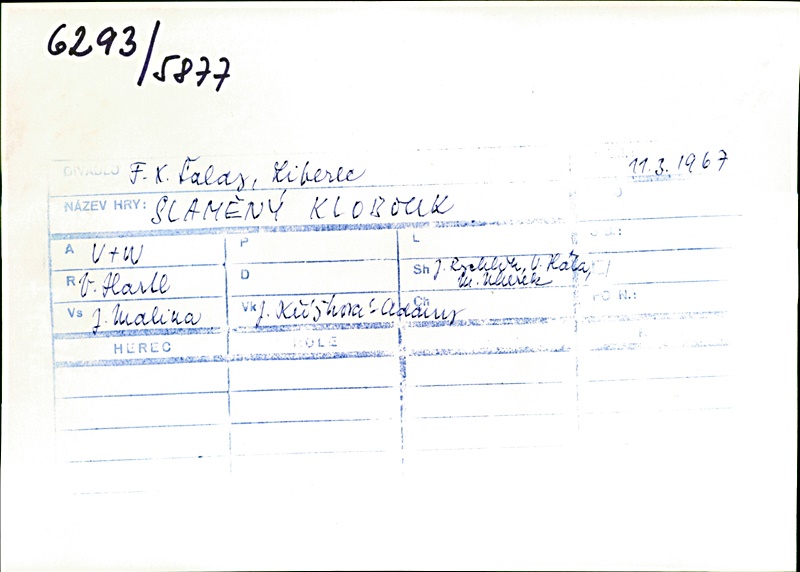 6293/5877
DIVADLO F. X. Šalda, Liberec 11.3.1967
NÁZEV HRY: SLAMĚNÝ KLOBOUK
A V+W P L
R V. Hartl D Sh J. Rychlík, V. Hála,
Vs J. Malina Vk J. Ch
HEREC ROLE